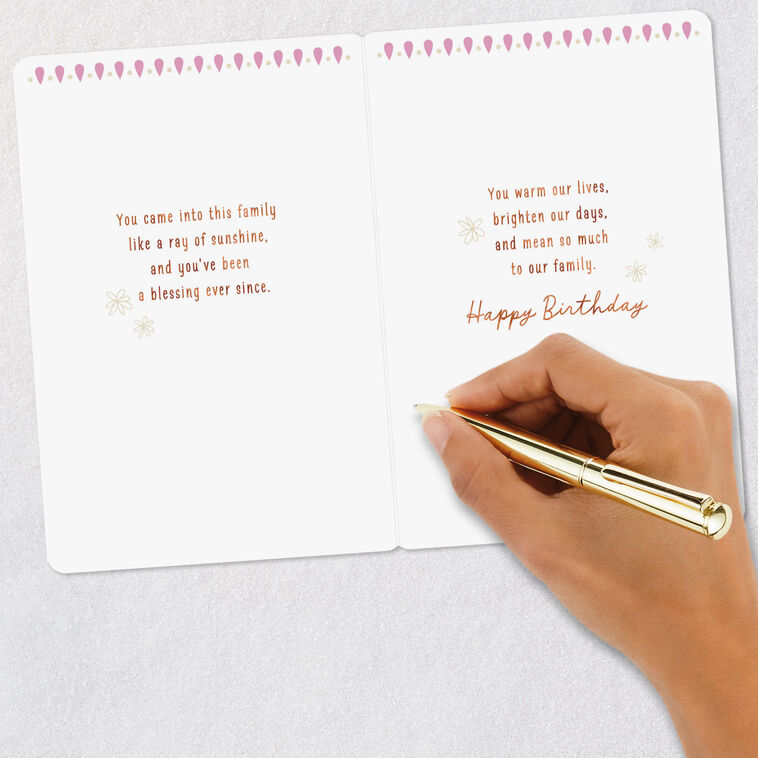 You came into this family
like a ray of sunshine,
and you've been
a blessing ever since.
You warm our lives,
brighten our days,
and mean so much
to our family.
Happy Birthday